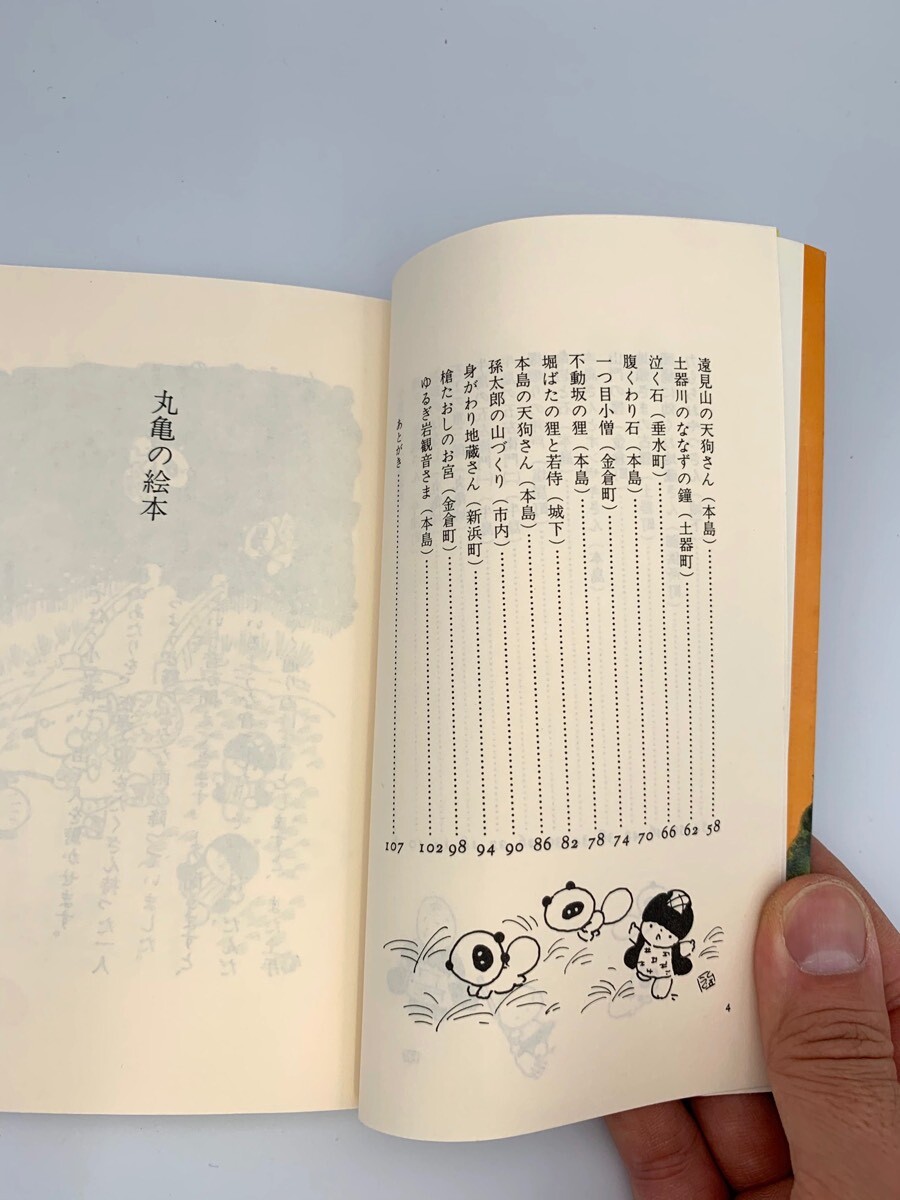 遠見山の天狗さん(本島)……58
土器川のななずの鐘(土器町)……62
泣く石(垂水町)……66
腹くわり石(本島)……70
一つ目小僧(金倉町)……74
不動坂の狸(本島)……78
堀ばたの狸と若侍(城下)……82
本島の天狗さん(本島)……86
孫太郎の山づくり(市内)……90
身がわり地蔵さん(新浜町)……94
槍たおしのお宮(金倉町)……98
ゆるぎ岩観音さま(本島)……102
あとがき……107
4
丸亀の絵本